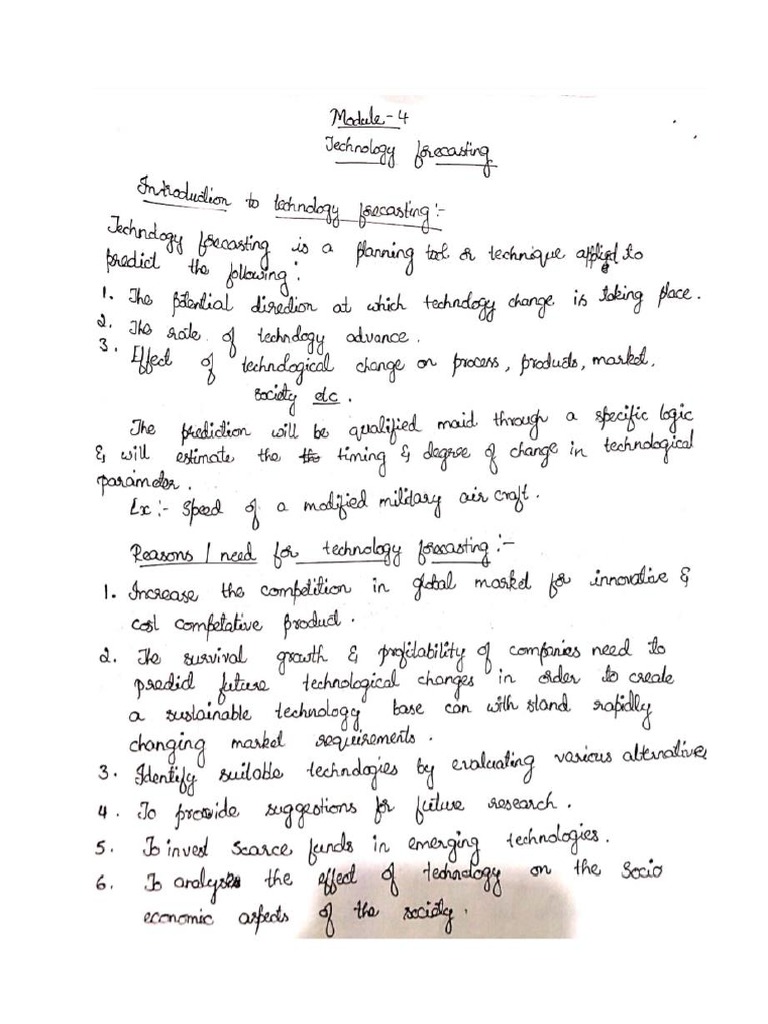 Module-4
Technology forecasting
Introduction to technology forecasting:-
Technology forecasting is a planning tool or technique applied to
predict the following:
1. The potential direction at which technology change is taking place.
2. The rate of technology advance.
3. Effect of technological change on process, products, market,
society etc.
The prediction will be qualified maid through a specific logic
& will estimate the timing & degree of change in technological
parameter.
Ex:- Speed of a modified military air craft.
Reasons / need for technology forecasting:-
1. Increase the competition in global market for innovative &
cost competative product.
2. The survival growth & profitability of companies need to
predict future technological changes in order to create
a sustainable technology base can with stand rapidly
changing market requirements.
3. Identify suitable technologies by evaluating various alternative
4. To provide suggestions for future research.
5. To invest scarce funds in emerging technologies.
6. To analyse the effect of technology on the socio
economic aspects of the society.